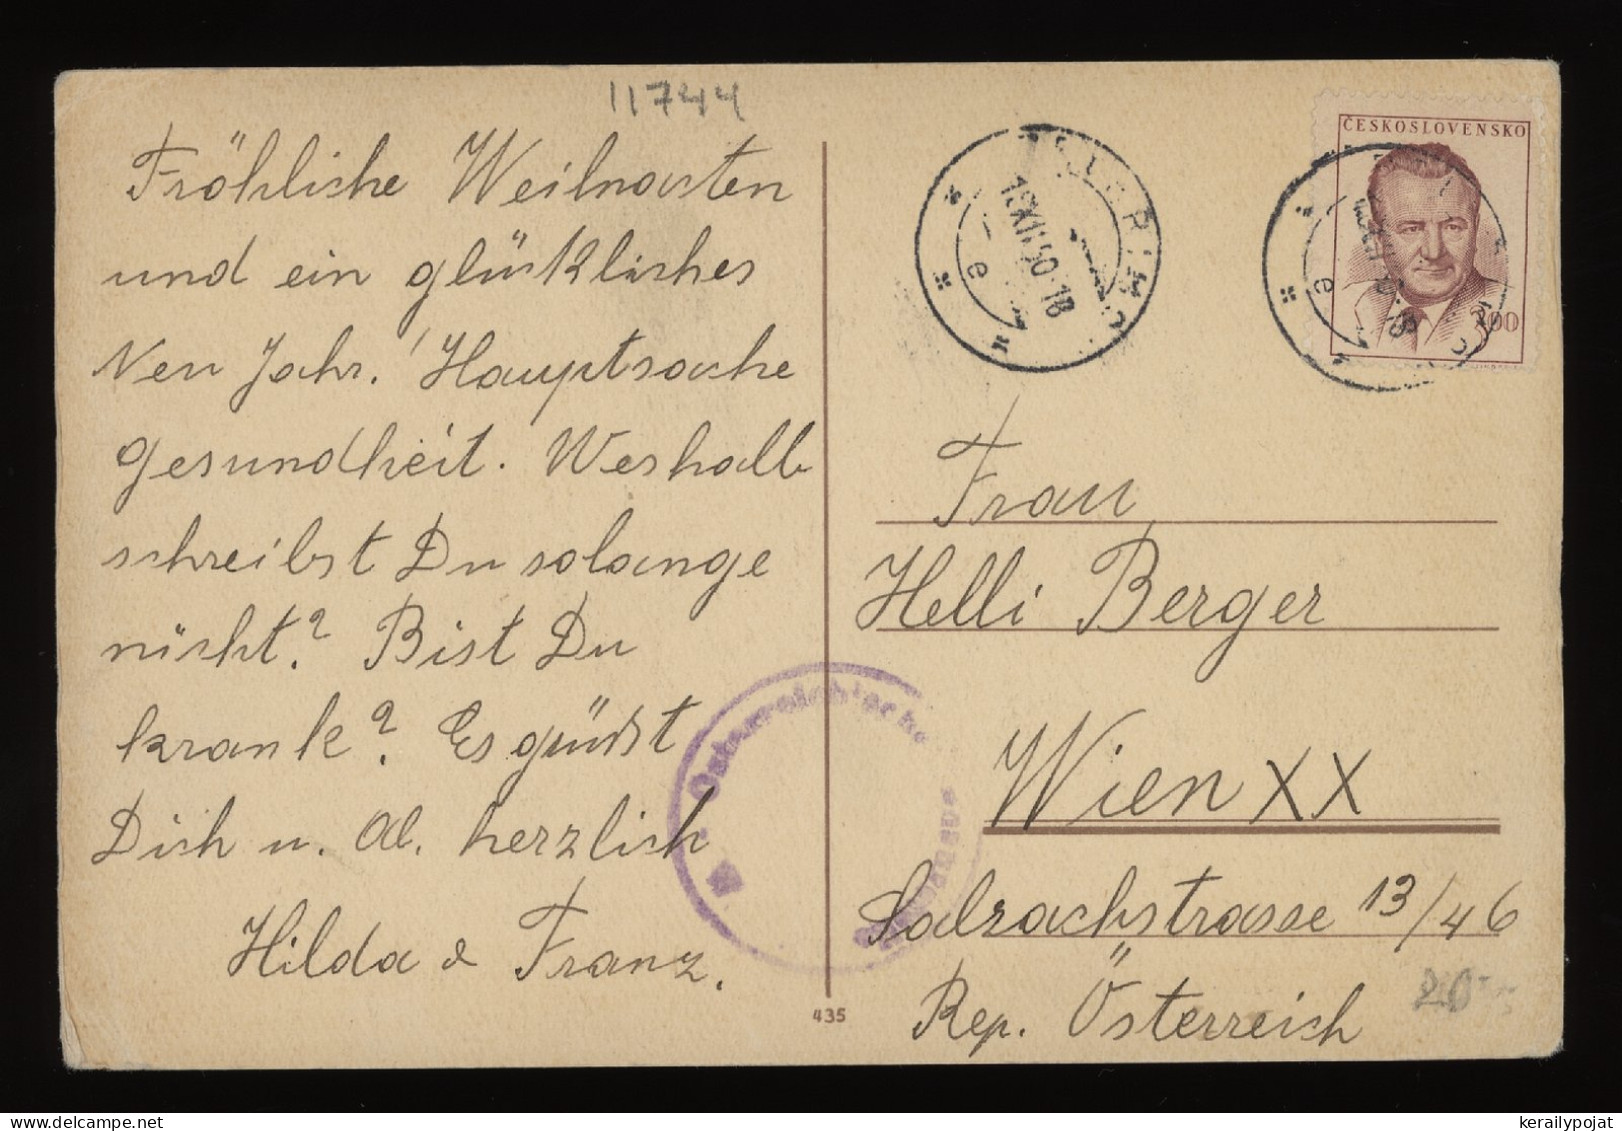 11744
Fröhliche Weihnachten
und ein glückliches
Neu Jahr! Hauptsache
Gesundheit. Weshalb
schreibst Du solange
nicht? Bist Du
krank? Es grüßt
Dich u. Ad. herzlich
Hilda & Franz.
435
ČESKOSLOVENSKO
3,00
e
e
Frau
Helli Berger
Wien XX
Salzachstrasse 13/46
Rep. Österreich
Österreichische
20
kerailypojat
www.delcampe.net